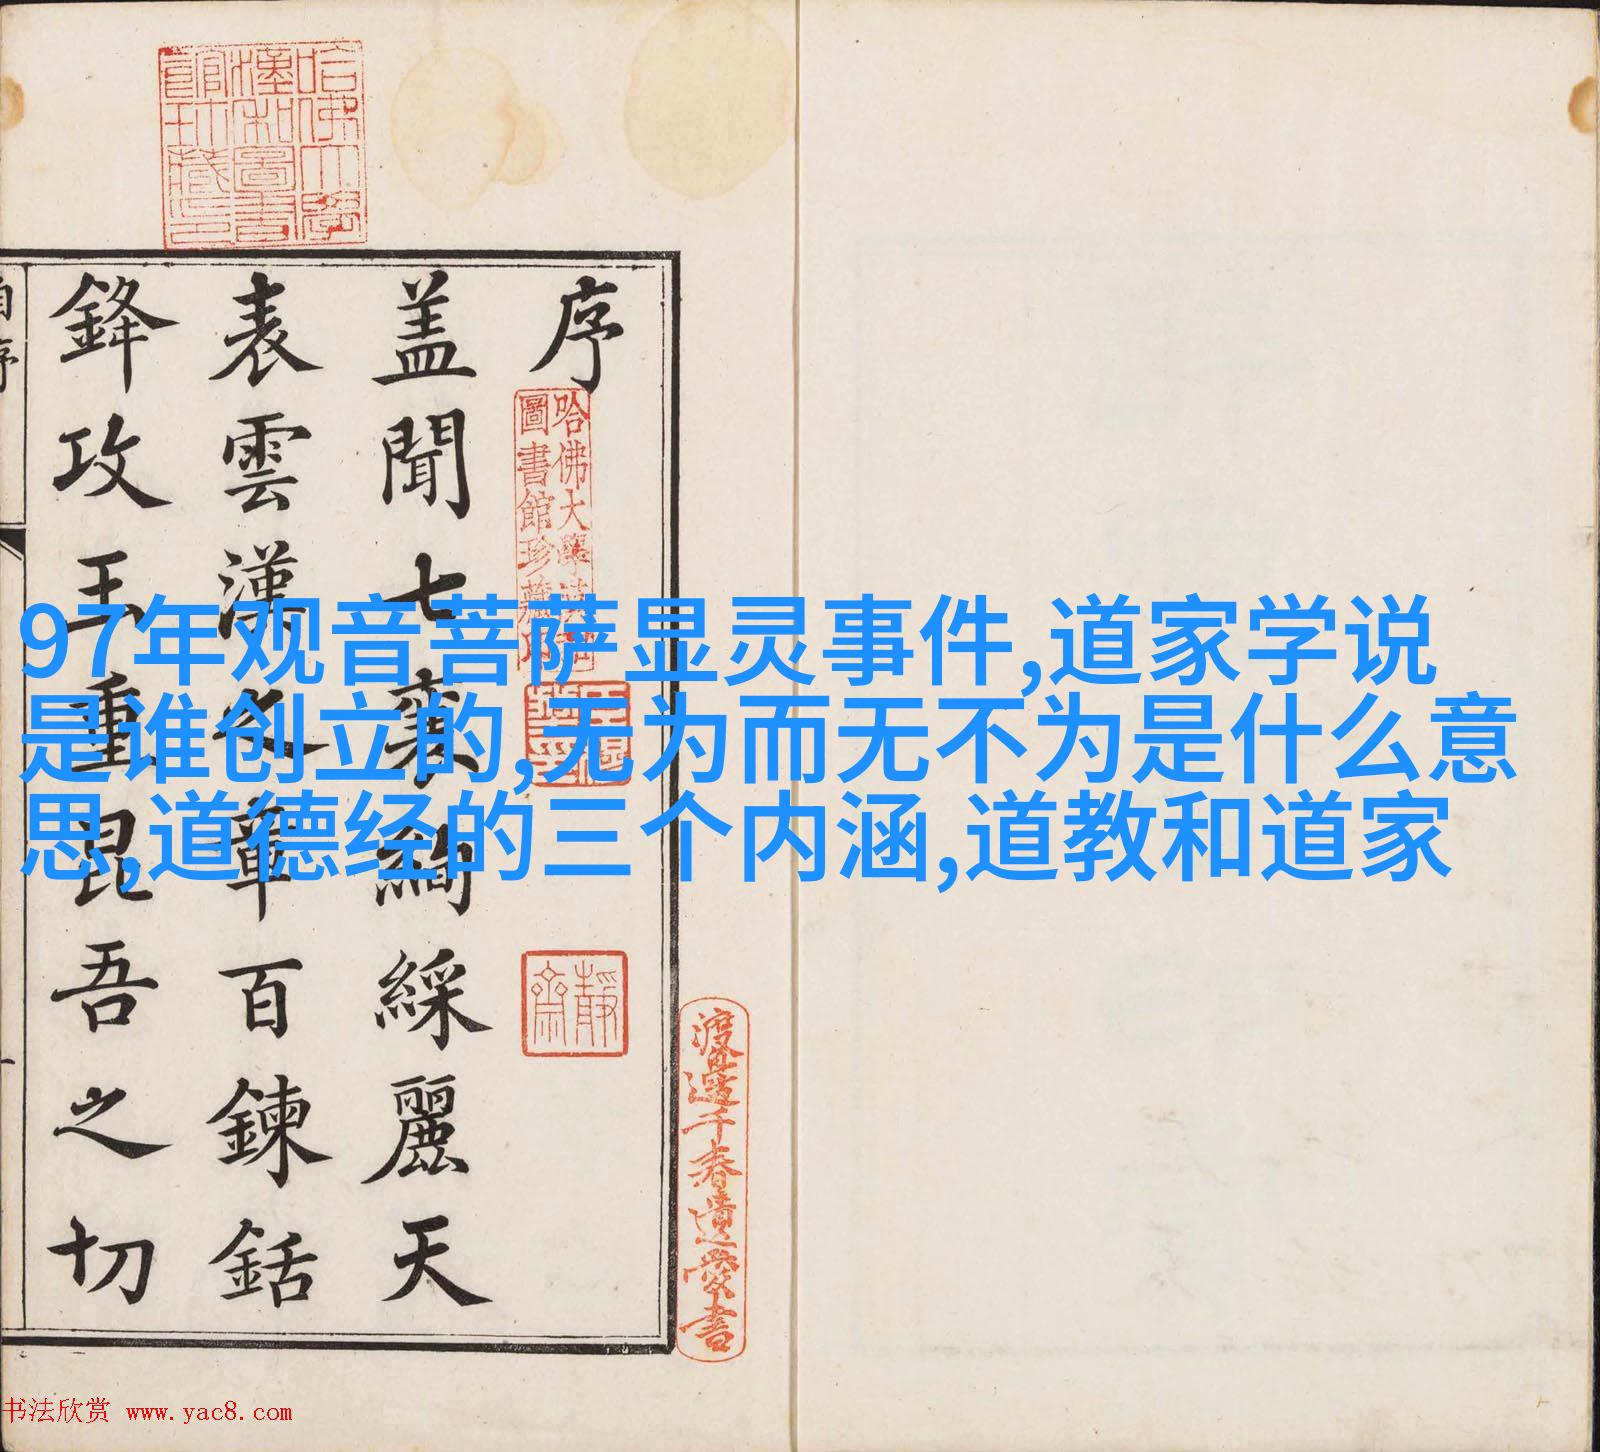 97年观音菩萨显灵事件,道家学说
是谁创立的,无为而无不为是什么意
思,道德经的三个内涵,道教和道家
序
蓋聞七襄絢綵麗天
表雲漢之章百鍊銛
鋒攻玉重昆吾之切
自序
哈佛大學漢和
圖書館珍藏印
哈佛大學
漢和圖書
館珍藏印
靜齋
渡邊千春遺愛書
书法欣赏 www.yac8.com